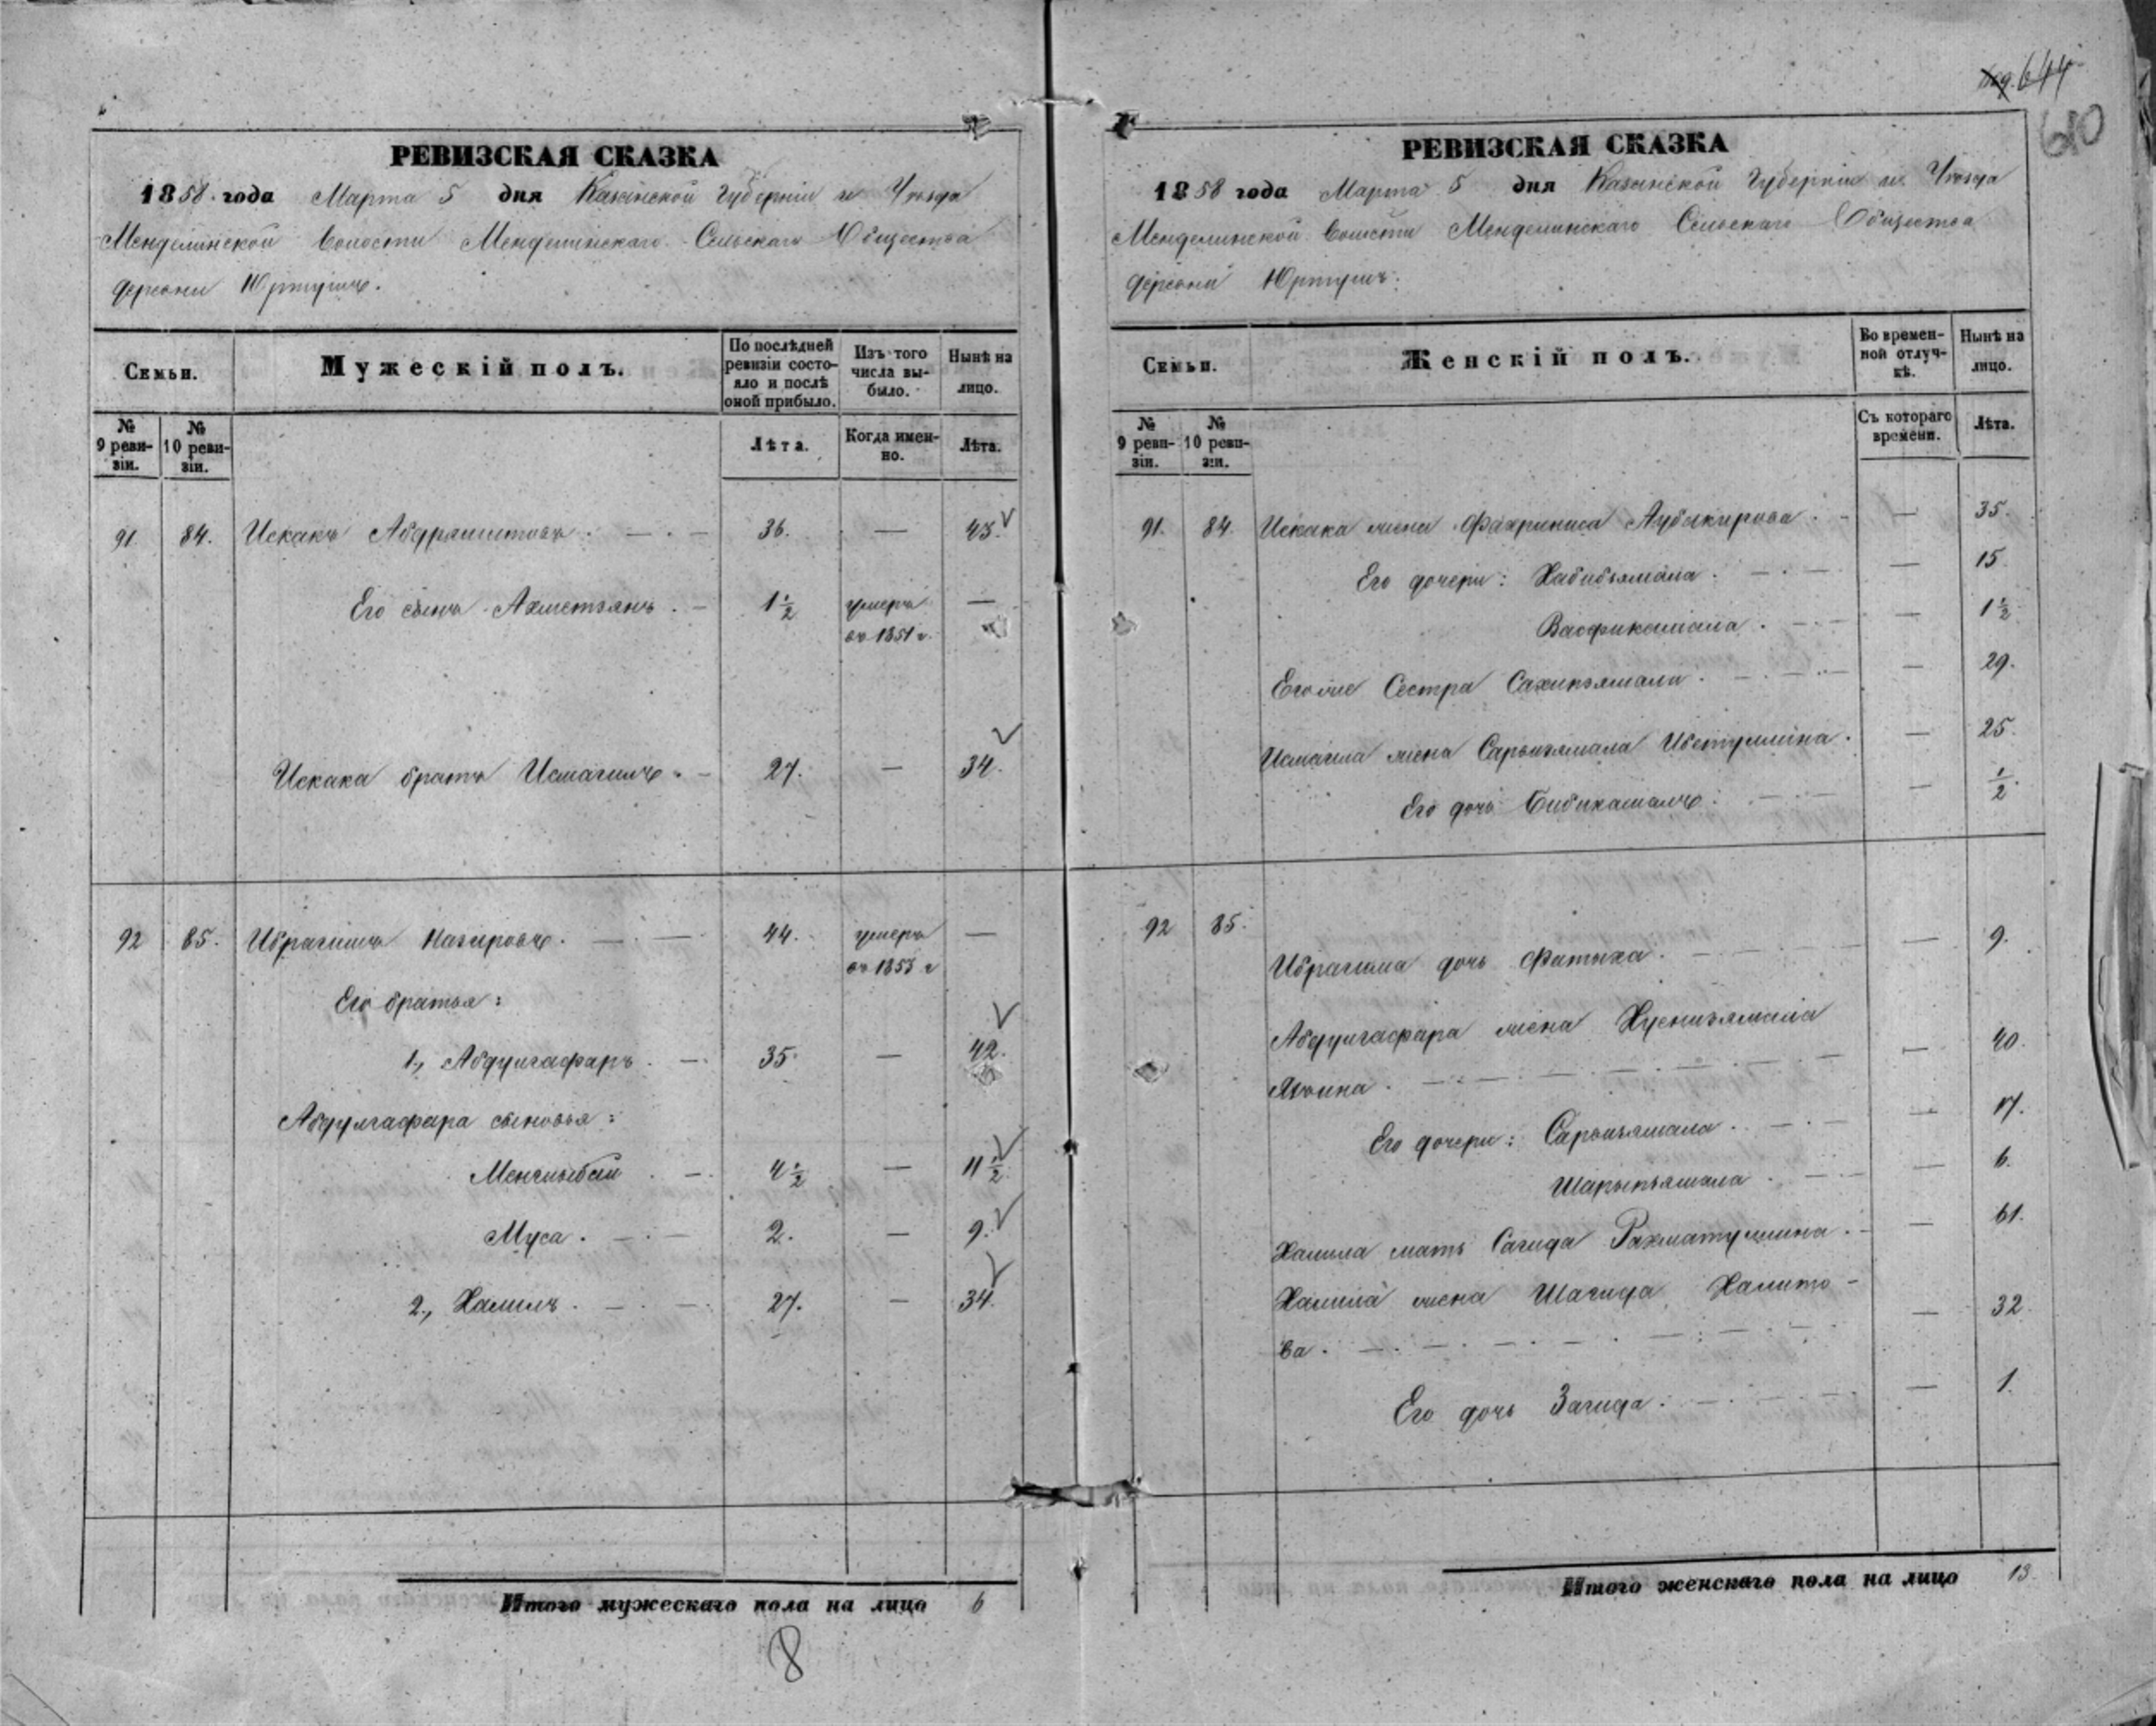 644
610
РЕВИЗСКАЯ СКАЗКА
1858 года Марта 5 дня Казанской Губерніи и Уѣзда
Менделинской Волости Менделинскаго Сельскаго Общества
деревни Юртушъ.
Семьи.
Мужескій полъ.
По послѣдней ревизіи состояло и послѣ оной прибыло.
Изъ того числа выбыло.
Нынѣ на лицо.
№ 9 ревизіи.
№ 10 ревизіи.
Лѣта.
Когда именно.
Лѣта.
91. 84. Искакъ Абдряшитовъ. 36. — 43.
Его сынъ Ахметзянъ. 1½ умеръ въ 1851 г. —
Искака братъ Исмагилъ. 27. — 34.
92 85. Ибрагимъ Назировъ. 44. умеръ въ 1853 г —
Его братья:
1., Абдулгафаръ. 35. — 42.
Абдулгафара сыновья:
Менглыбай 4½ — 11½
Муса. 2. — 9.
2., Халилъ. 27. — 34.
Итого мужескаго пола на лицо 6
8
РЕВИЗСКАЯ СКАЗКА
1858 года Марта 5 дня Казанской Губерніи и Уѣзда
Менделинской Волости Менделинскаго Сельскаго Общества
деревни Юртушъ.
Семьи.
Женскій полъ.
Во временной отлучкѣ.
Нынѣ на лицо.
№ 9 ревизіи.
№ 10 ревизіи.
Съ котораго времени.
Лѣта.
91. 84. Искака жена Фахриниса Аубакирова. — 35.
Его дочери: Хабибзямала. — 15.
Вафикамала. — 1½
Его же Сестра Сахипзямали. — 29.
Исмагила жена Сарвизямала Ибетуллина. — 25.
Его дочь Бибикамалъ. — ½
92 85. Ибрагима дочь Фатыха. — 9.
Абдулгафара жена Хуснизямала
Яхина. — 40.
Его дочери: Сарвизямала. — 17.
Шарыпзямала. — 6.
Халила мать Сагида Рахматуллина. — 61.
Халила жена Шагида Халито-
ва. — 32.
Его дочь Загида. — 1.
Итого женскаго пола на лицо 13.